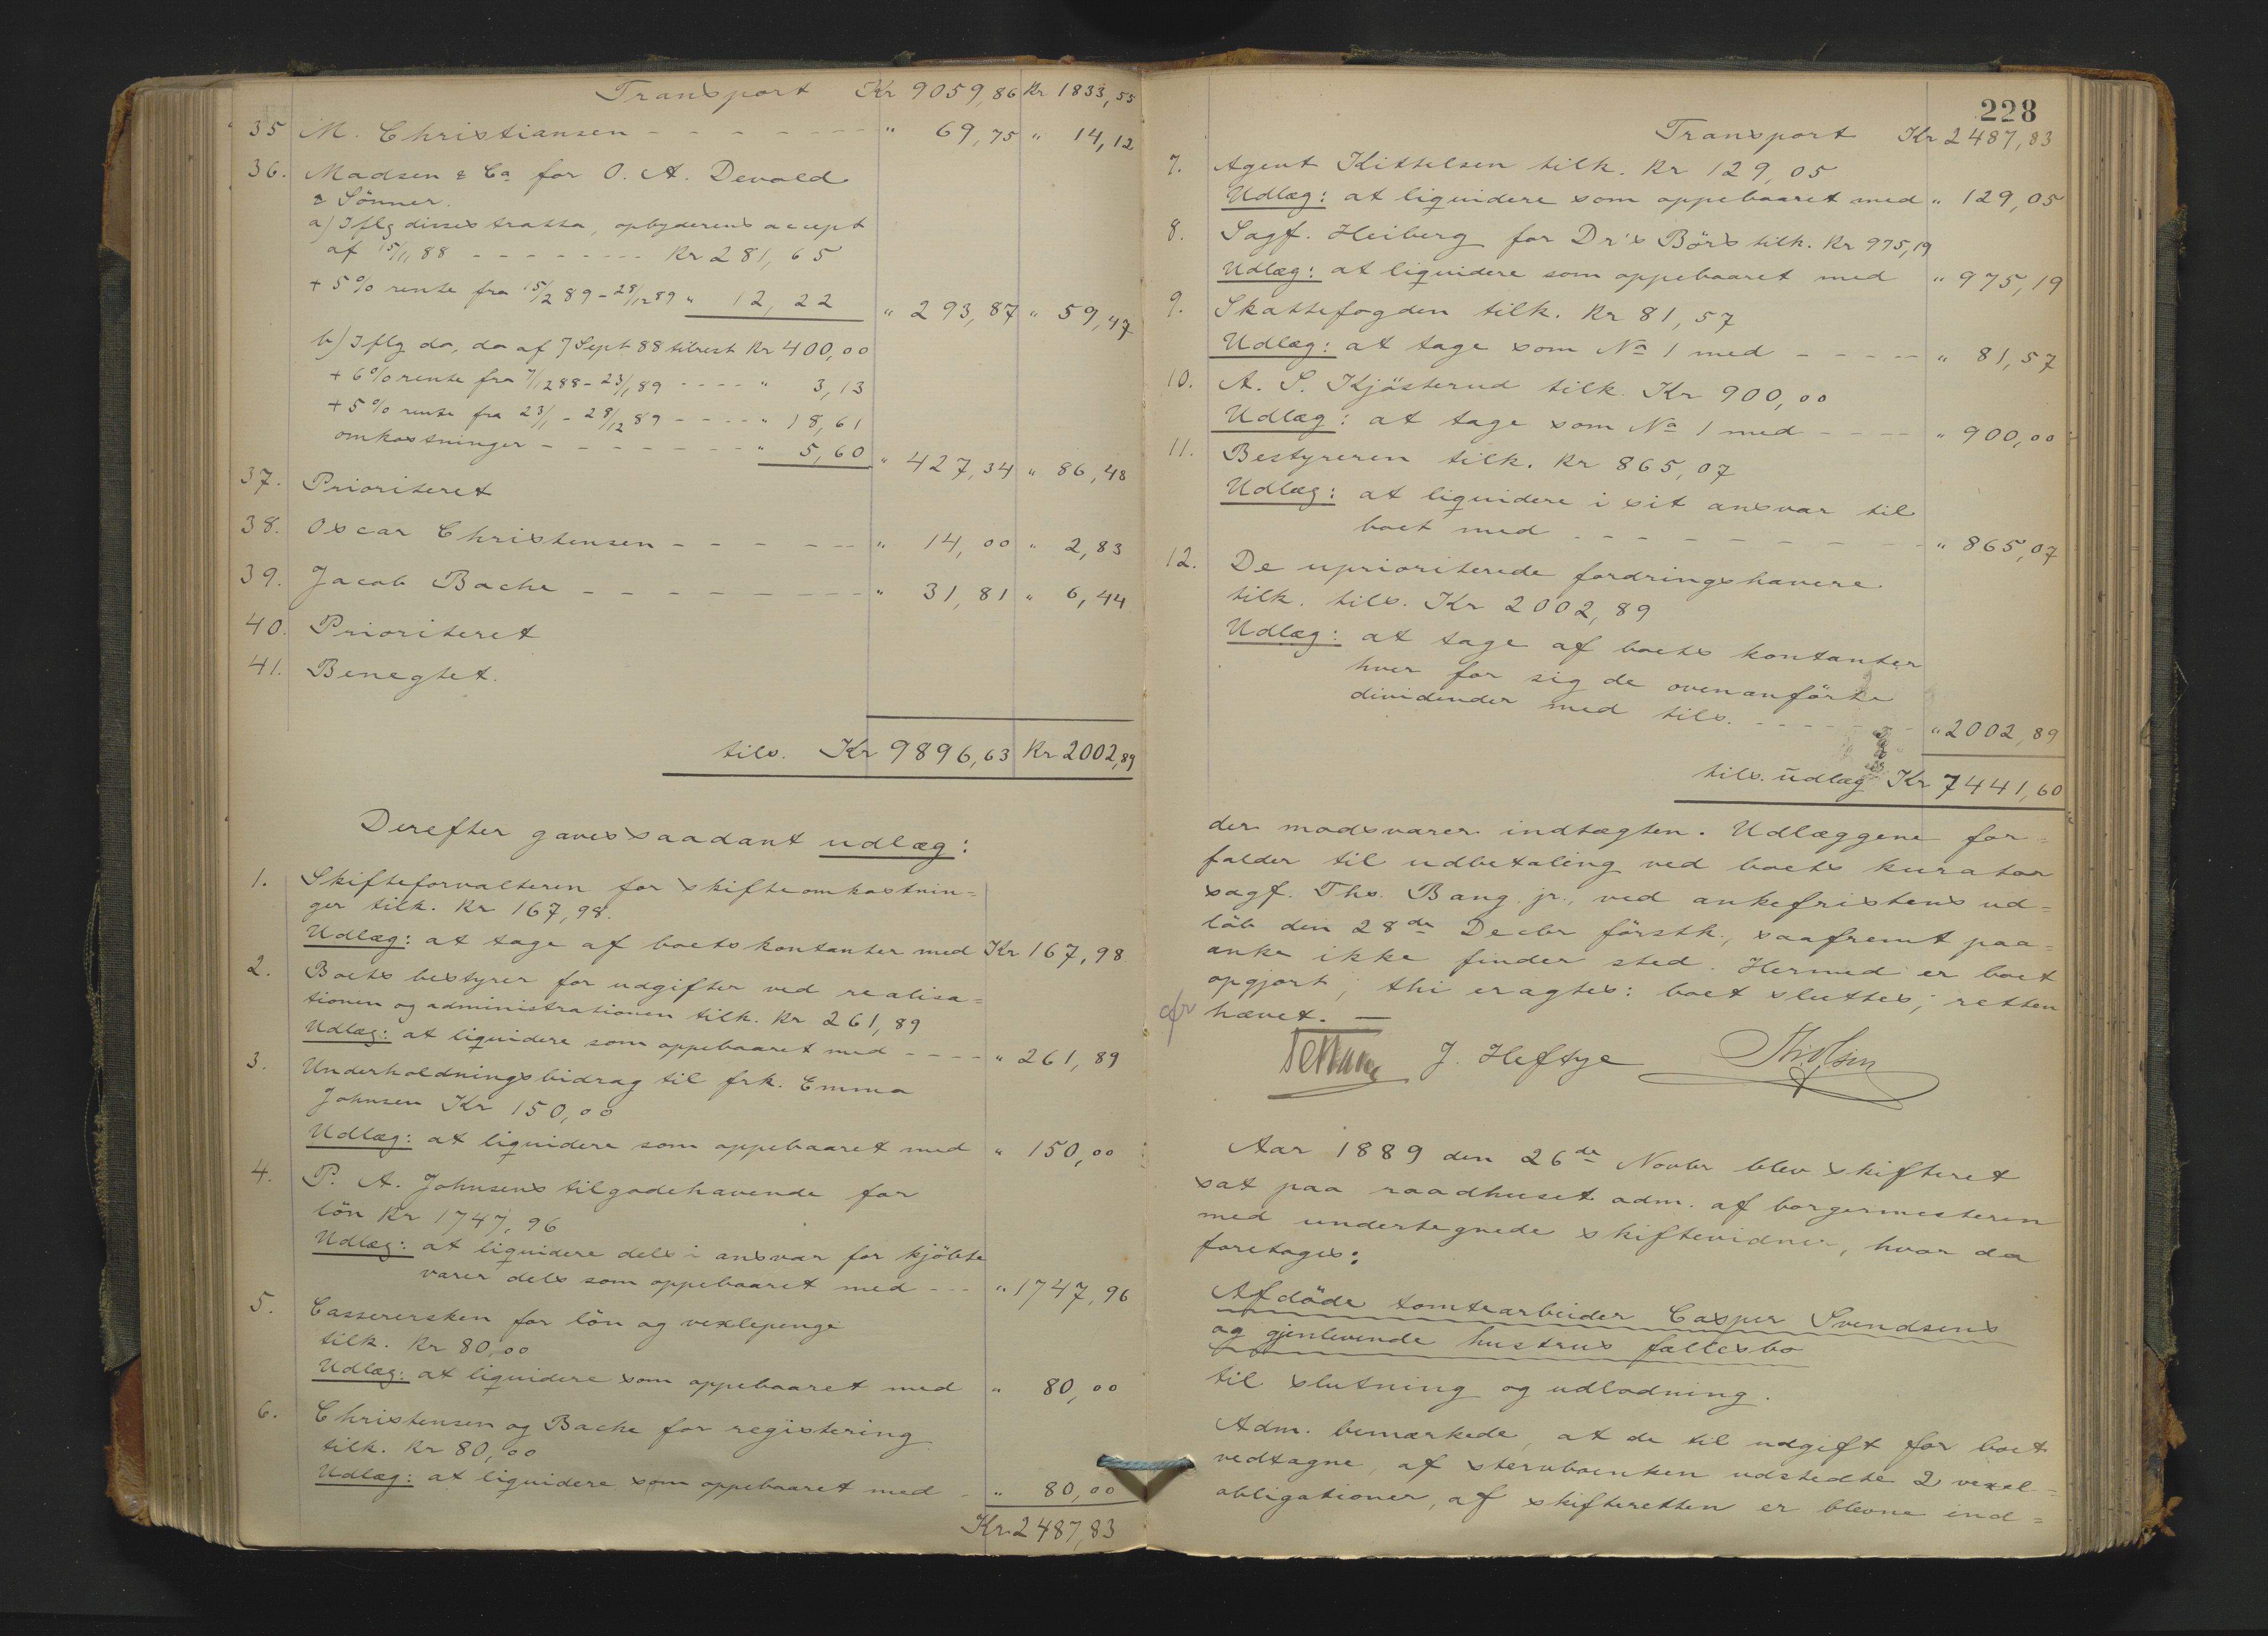 Transport Kr 9059,86 Kr 1833,55
35 M. Christiansen - - - - - - - " 69,75 " 14,12
36. Madsen & Co for O. A. Devold
& Sönner.
a) Iflg divses tratta, opbyderens accept
af 15/11 88 - - - - - - - - - Kr 281,65
+ 5% rente fra 15/2 89 - 28/12 89 " 12,22 " 293,87 " 59,47
b) Iflg do, do af 7 Sept 88 tilrest Kr 400,00
+ 6% rente fra 7/12 88 - 23/1 89 - - - - " 3,13
+ 5% rente fra 23/1 - 28/12 89 - - - - " 18,61
omkostninger - - - - - - - " 5,60 " 427,34 " 86,48
37. Prioriteret
38. Oscar Christensen - - - - - - " 14,00 " 2,83
39. Jacob Bache - - - - - - - - - " 31,81 " 6,44
40. Prioriteret
41. Benegtet.
tils. Kr 9896,63 Kr 2002,89
Derefter gaves saadant udlæg:
1. Skifteforvalteren for skifteomkostnin=
ger tilk. Kr 167,98.
Udlæg: at tage af boets kontanter med Kr 167,98
2. Boets bestyrer for udgifter ved realisa=
tionen og administrationen tilk. Kr 261,89
Udlæg: at liquidere som oppebaaret med - - - - " 261,89
3. Underholdningsbidrag til frk. Emma
Johnsen Kr 150,00
Udlæg: at liquidere som oppebaaret med " 150,00
4. P. A. Johnsens tilgodehavende for
lön Kr 1747,96
Udlæg: at liquidere dels i ansvar for kjöbte
varer dels som oppebaaret med - - - " 1747,96
5. Casserersken for lön og vexlepenge
tilk. Kr 80,00
Udlæg: at liquidere som oppebaaret med " 80,00
6. Christensen og Bache for registering
tilk. Kr 80,00
Udlæg: at liquidere som oppebaaret med - " 80,00
Kr. 2487,83
228
Transport Kr 2487,83
7. Agent Kittelsen tilk. Kr 129,05
Udlæg: at liquidere som oppebaaret med " 129,05
8. Sagf. Heiberg for Dr's Börs tilk. Kr 975,19
Udlæg: at liquidere som oppebaaret med " 975,19
9. Skattefogden tilk. Kr 81,57
Udlæg: at tage som No 1 med - - - - - " 81,57
10. A. S. Kjösterud tilk. Kr 900,00
Udlæg: at tage som No 1 med - - - - " 900,00
11. Bestyreren tilk. Kr 865,07
Udlæg: at liquidere i sit ansvar til
boet med - - - - - - - - - " 865,07
12. De uprioriterede fordringshavere
tilk. tils. Kr 2002,89
Udlæg: at tage af boets kontanter
hver for sig de ovenanförte
dividender med tils. - - - - - - - " 2002,89
tils. udlæg Kr 7441,60
der modsvarer indtægten. Udlæggene for=
falder til udbetaling ved boets kurator
sagf. Ths. Bang jr., ved ankefristens ud=
löb den 28de Decbr förstk., saafremt paa=
anke ikke finder sted. Hermed er boet
opgjort; thi eragtes: boet sluttes; retten
hævet. —
J. Heftye
Aar 1889 den 26de Novbr blev skifteret
sat paa raadhuset adm. af borgermesteren
med undertegnede skiftevidner, hvor da
foretoges:
Afdöde tomtearbeider Casper Svendsens
og gjenlevende hustrus fællesbo
til slutning og udlodning.
Adm. bemærkede, at de til udgift for boet
vedtagne, af stervboenken udstedte 2 vexel=
obligationer, af skifteretten er blevne ind=